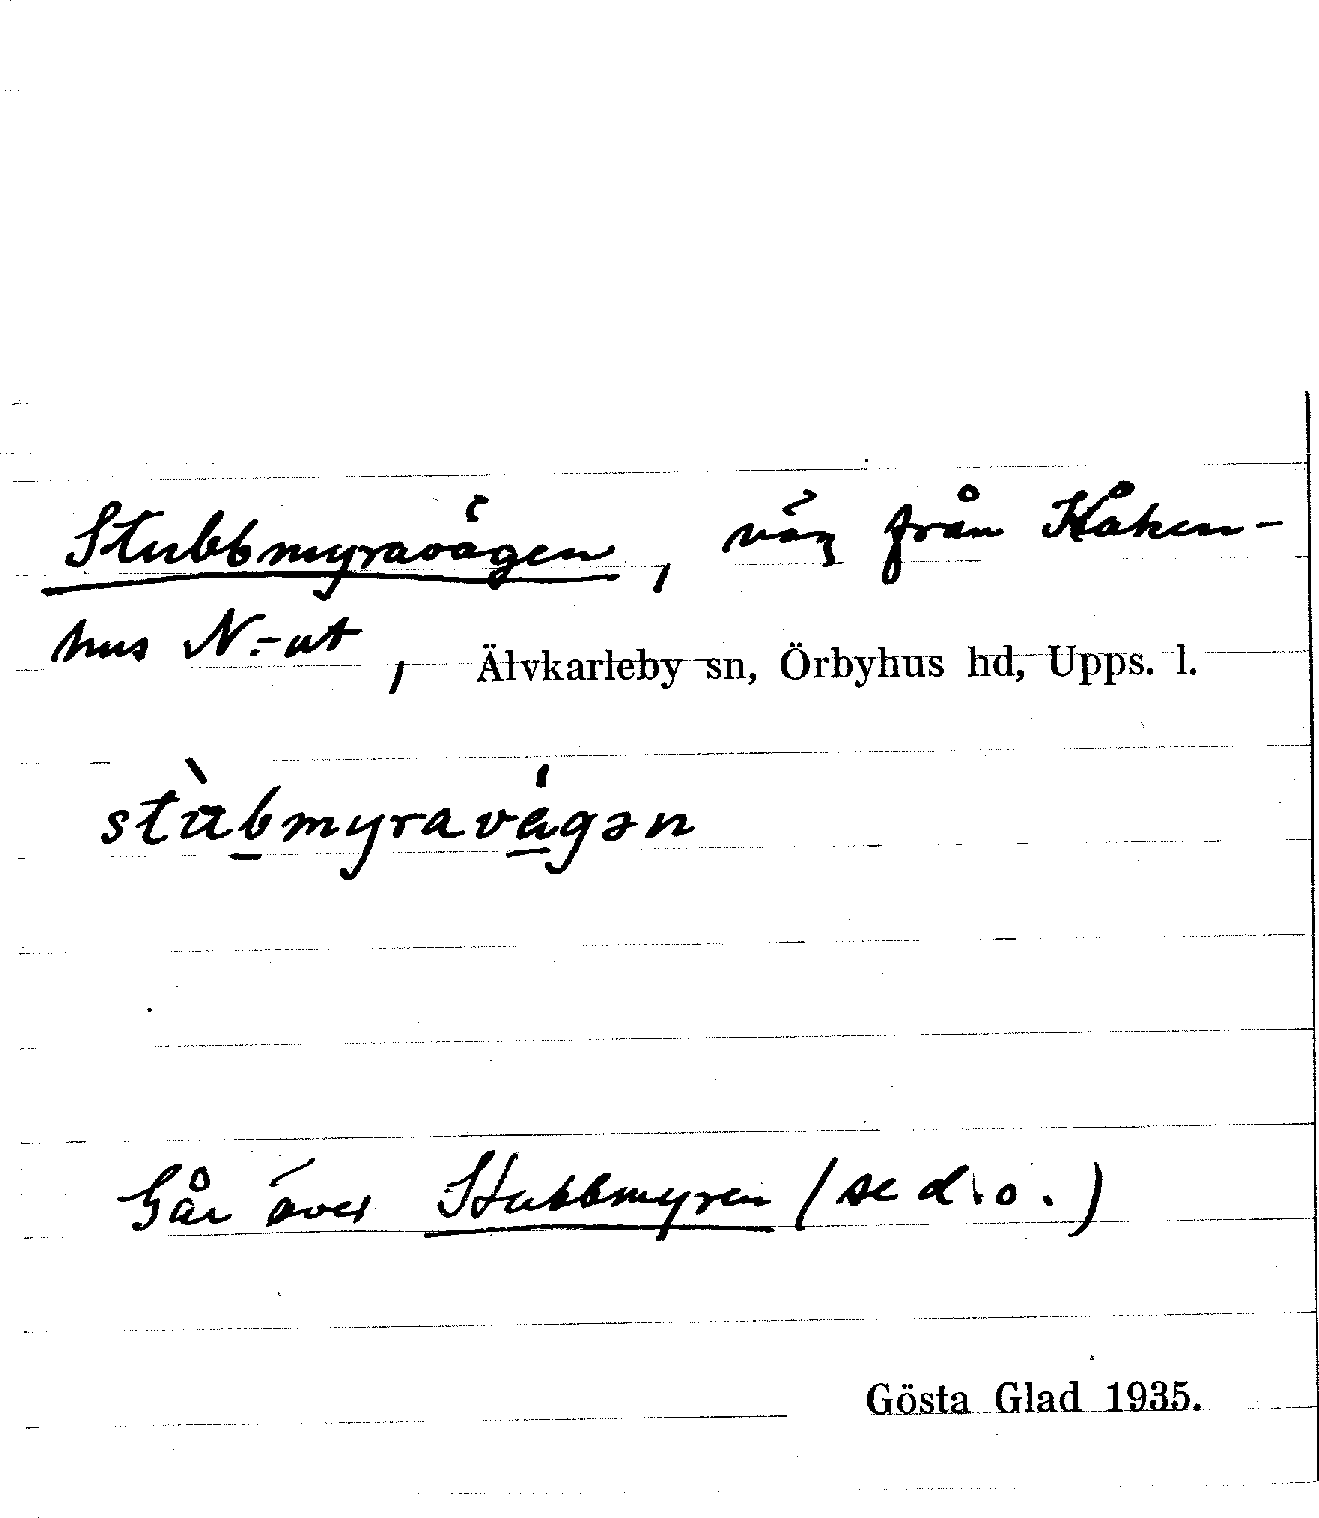 Stubbmyravägen, väg från Håken-
hus N.-ut, Älvkarleby sn, Örbyhus hd, Upps. l.
stùbmyravágən
Går över Stubbmyren (se d. o.)
Gösta Glad 1935.